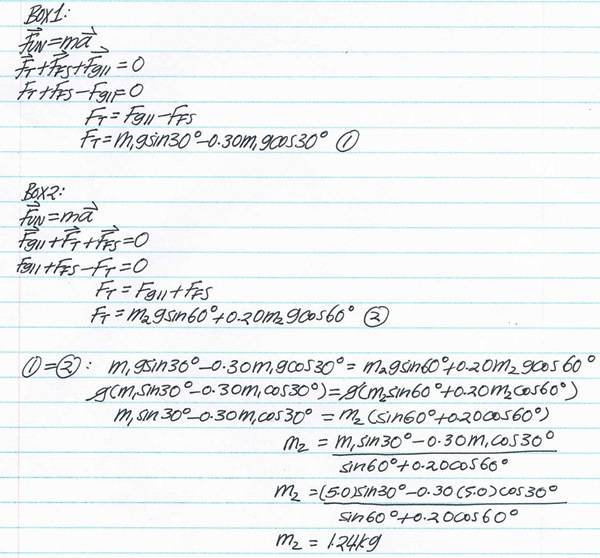 Box1:
F⃗UN=ma⃗
F⃗T+F⃗FS+F⃗g||=0
FT+FFS-Fg||=0
FT=Fg||-FFS
FT=m₁gsin30°-0.30m₁gcos30° ①
Box2:
F⃗UN=ma⃗
F⃗g||+F⃗T+F⃗FS=0
Fg||+FFS-FT=0
FT=Fg||+FFS
FT=m₂gsin60°+0.20m₂gcos60° ②
①=②: m₁gsin30°-0.30m₁gcos30°=m₂gsin60°+0.20m₂gcos60°
g(m₁sin30°-0.30m₁cos30°)=g(m₂sin60°+0.20m₂cos60°)
m₁sin30°-0.30m₁cos30°=m₂(sin60°+0.20cos60°)
m₂=m₁sin30°-0.30m₁cos30°
sin60°+0.20cos60°
m₂=(5.0)sin30°-0.30(5.0)cos30°
sin60°+0.20cos60°
m₂=1.24kg